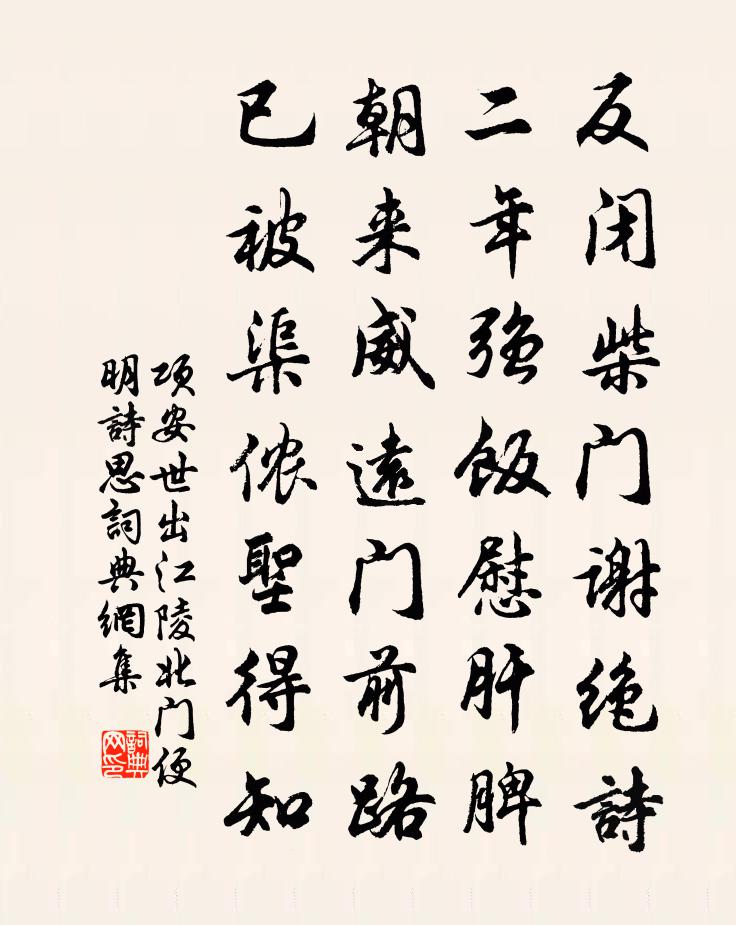 反闭柴门谢绝詩
二年强飯慰肝脾
朝来威遠门前路
已被渠侬聖得知
项安世出江陵北门便
明詩思詞典網集
詞典网印